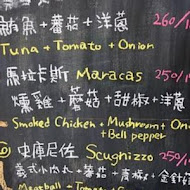 鮪魚+蕃茄+洋蔥 260/1
Tuna + Tomato + Onion
馬拉卡斯 Maracas 250/1
燻雞+蘑菇+甜椒+洋蔥
Smoked Chicken + Mushroom + On
+Bell pepper
史庫尼佐 Scugnizzo 250/1
義式小肉丸+蕃茄+青椒+金針
Meatball + Tomato +